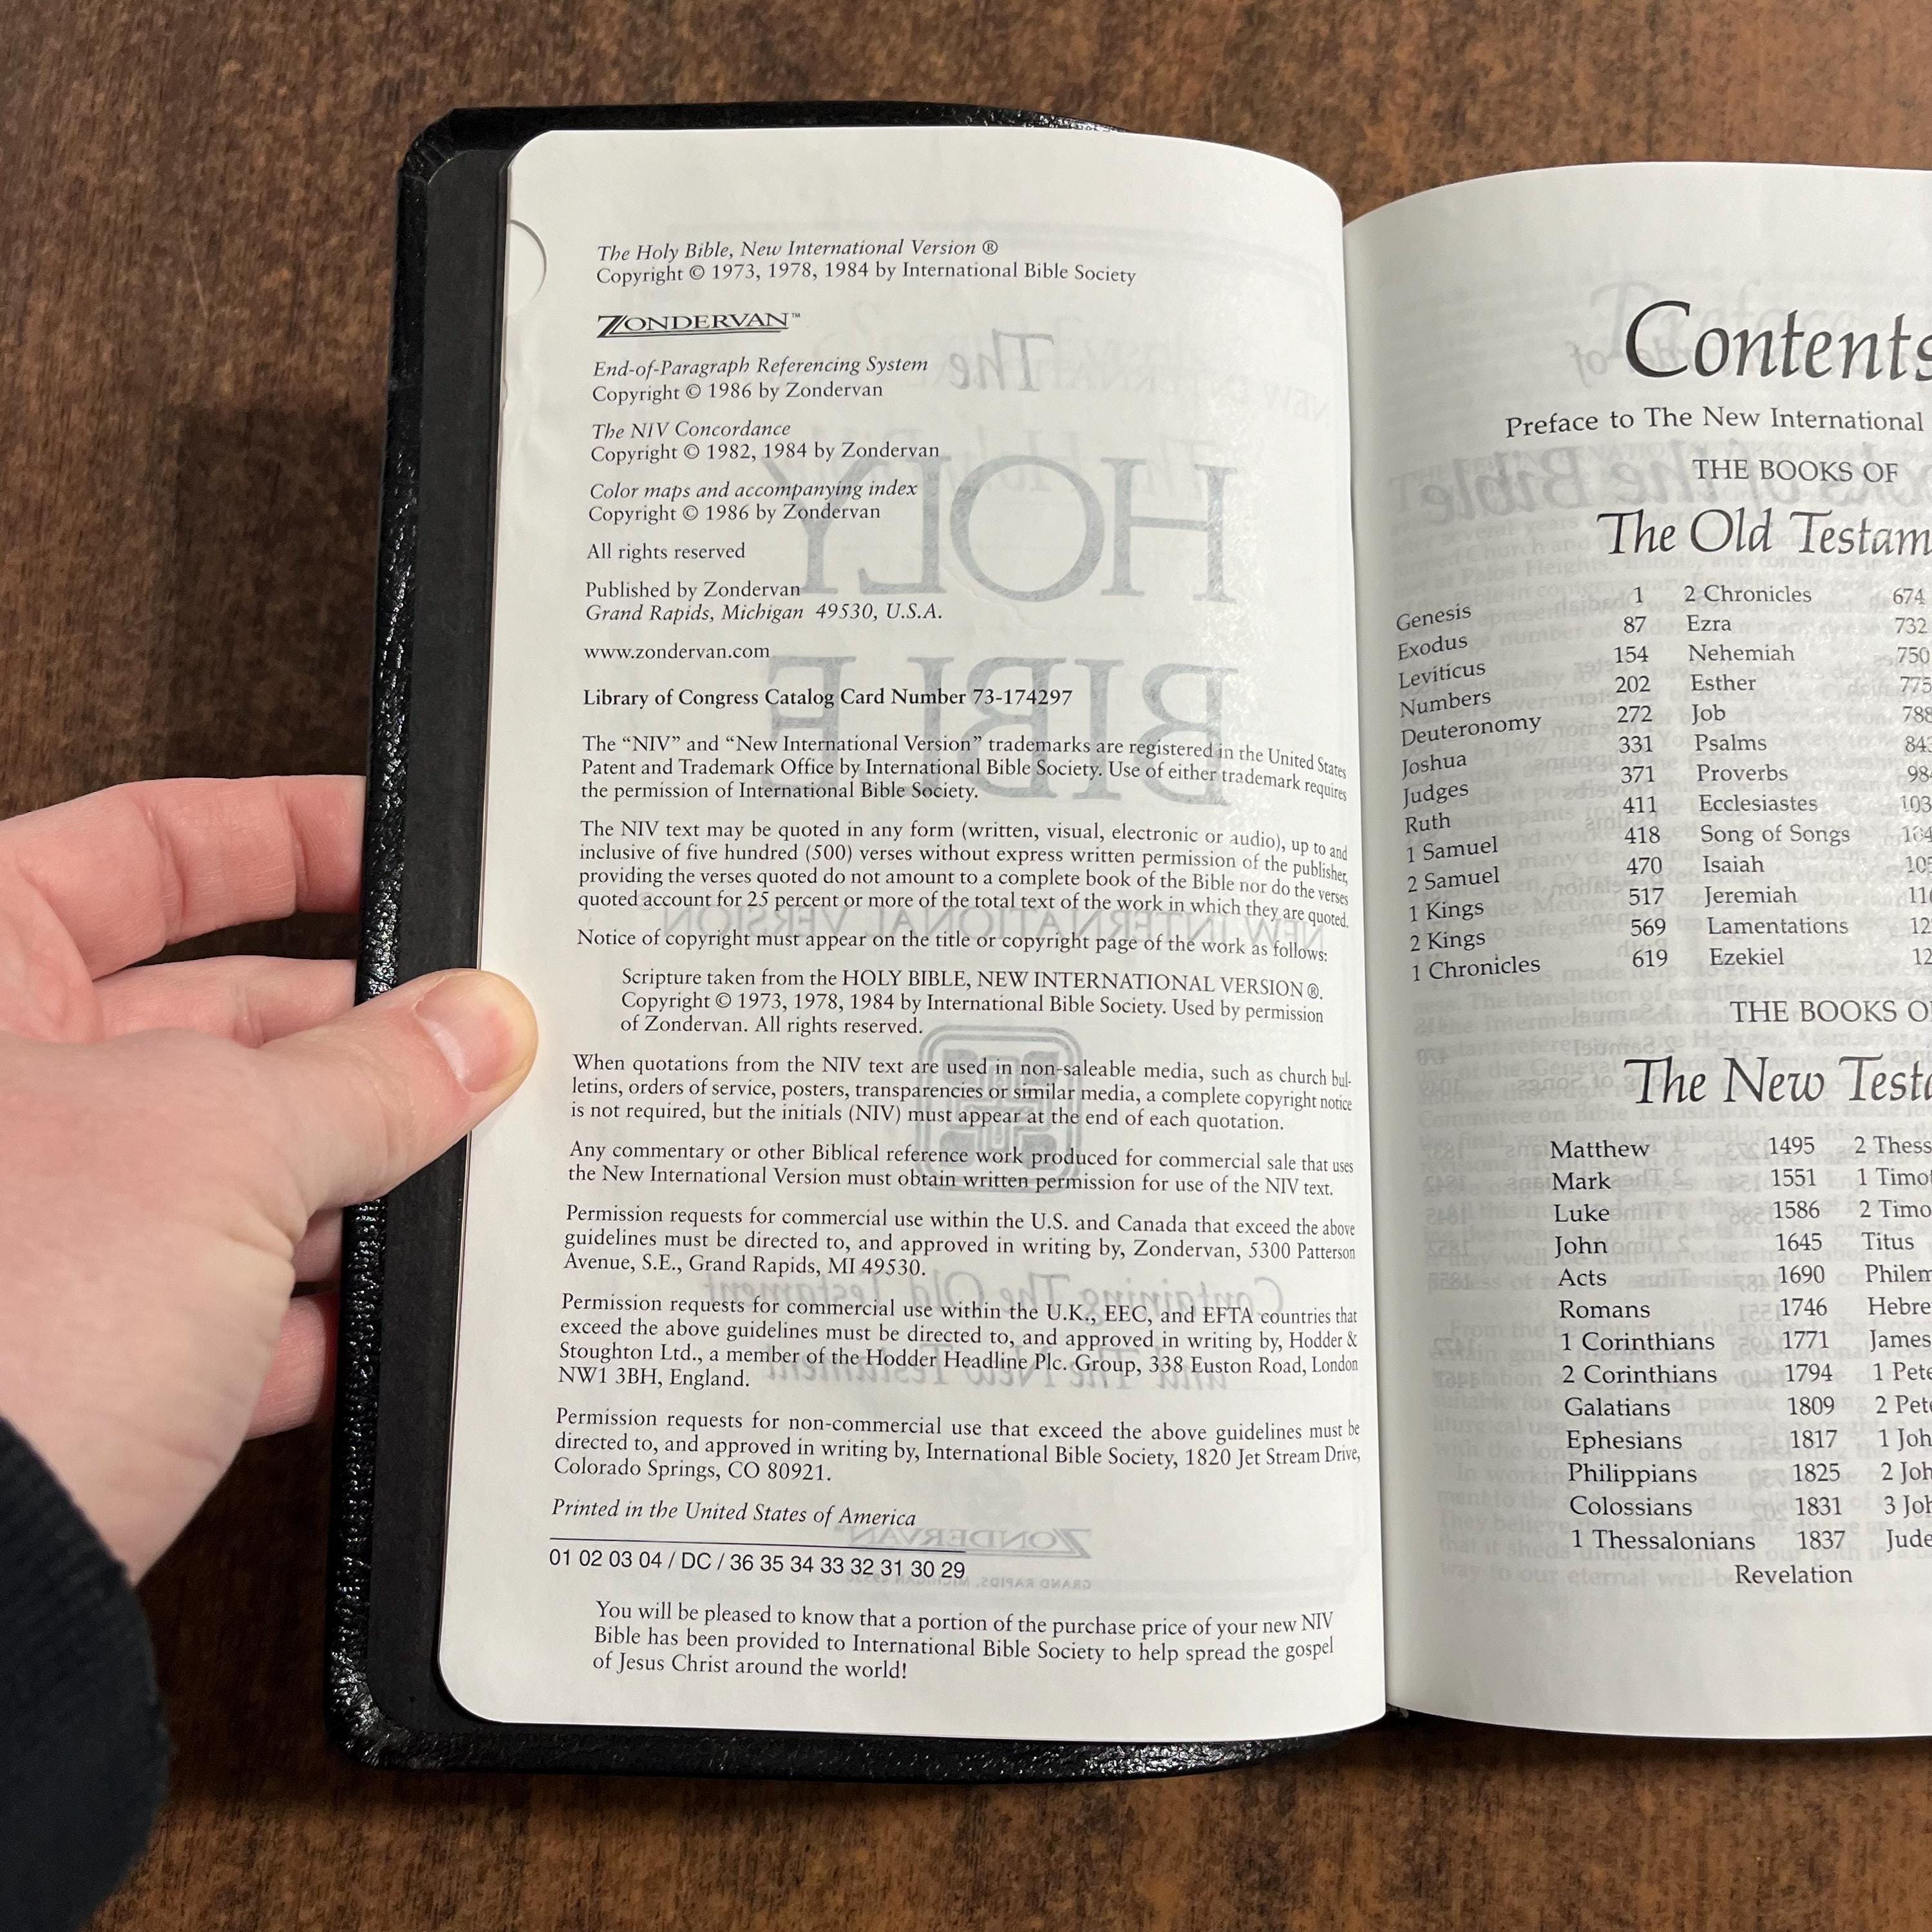 The Holy Bible, New International Version ®
Copyright © 1973, 1978, 1984 by International Bible Society
ZONDERVAN™
End-of-Paragraph Referencing System
Copyright © 1986 by Zondervan
The NIV Concordance
Copyright © 1982, 1984 by Zondervan
Color maps and accompanying index
Copyright © 1986 by Zondervan
All rights reserved
Published by Zondervan
Grand Rapids, Michigan 49530, U.S.A.
www.zondervan.com
Library of Congress Catalog Card Number 73-174297
The “NIV” and “New International Version” trademarks are registered in the United States
Patent and Trademark Office by International Bible Society. Use of either trademark requires
the permission of International Bible Society.
The NIV text may be quoted in any form (written, visual, electronic or audio), up to and
inclusive of five hundred (500) verses without express written permission of the publisher,
providing the verses quoted do not amount to a complete book of the Bible nor do the verses
quoted account for 25 percent or more of the total text of the work in which they are quoted.
Notice of copyright must appear on the title or copyright page of the work as follows:
Scripture taken from the HOLY BIBLE, NEW INTERNATIONAL VERSION®.
Copyright © 1973, 1978, 1984 by International Bible Society. Used by permission
of Zondervan. All rights reserved.
When quotations from the NIV text are used in non-saleable media, such as church bul-
letins, orders of service, posters, transparencies or similar media, a complete copyright notice
is not required, but the initials (NIV) must appear at the end of each quotation.
Any commentary or other Biblical reference work produced for commercial sale that uses
the New International Version must obtain written permission for use of the NIV text.
Permission requests for commercial use within the U.S. and Canada that exceed the above
guidelines must be directed to, and approved in writing by, Zondervan, 5300 Patterson
Avenue, S.E., Grand Rapids, MI 49530.
Permission requests for commercial use within the U.K., EEC, and EFTA countries that
exceed the above guidelines must be directed to, and approved in writing by, Hodder &
Stoughton Ltd., a member of the Hodder Headline Plc. Group, 338 Euston Road, London
NW1 3BH, England.
Permission requests for non-commercial use that exceed the above guidelines must be
directed to, and approved in writing by, International Bible Society, 1820 Jet Stream Drive,
Colorado Springs, CO 80921.
Printed in the United States of America
01 02 03 04 / DC / 36 35 34 33 32 31 30 29
You will be pleased to know that a portion of the purchase price of your new NIV
Bible has been provided to International Bible Society to help spread the gospel
of Jesus Christ around the world!
Contents
Preface to The New International
THE BOOKS OF
The Old Testam
Genesis 1 2 Chronicles 674
Exodus 87 Ezra 732
Leviticus 154 Nehemiah 750
Numbers 202 Esther 775
Deuteronomy 272 Job 788
Joshua 331 Psalms 843
Judges 371 Proverbs 98
Ruth 411 Ecclesiastes 103
1 Samuel 418 Song of Songs
2 Samuel 470 Isaiah 105
1 Kings 517 Jeremiah 11
2 Kings 569 Lamentations 12
1 Chronicles 619 Ezekiel 12
THE BOOKS O
The New Testa
Matthew 1495 2 Thess
Mark 1551 1 Timot
Luke 1586 2 Timo
John 1645 Titus
Acts 1690 Philem
Romans 1746 Hebre
1 Corinthians 1771 James
2 Corinthians 1794 1 Pete
Galatians 1809 2 Pet
Ephesians 1817 1 Joh
Philippians 1825 2 Joh
Colossians 1831 3 Joh
1 Thessalonians 1837 Jude
Revelation